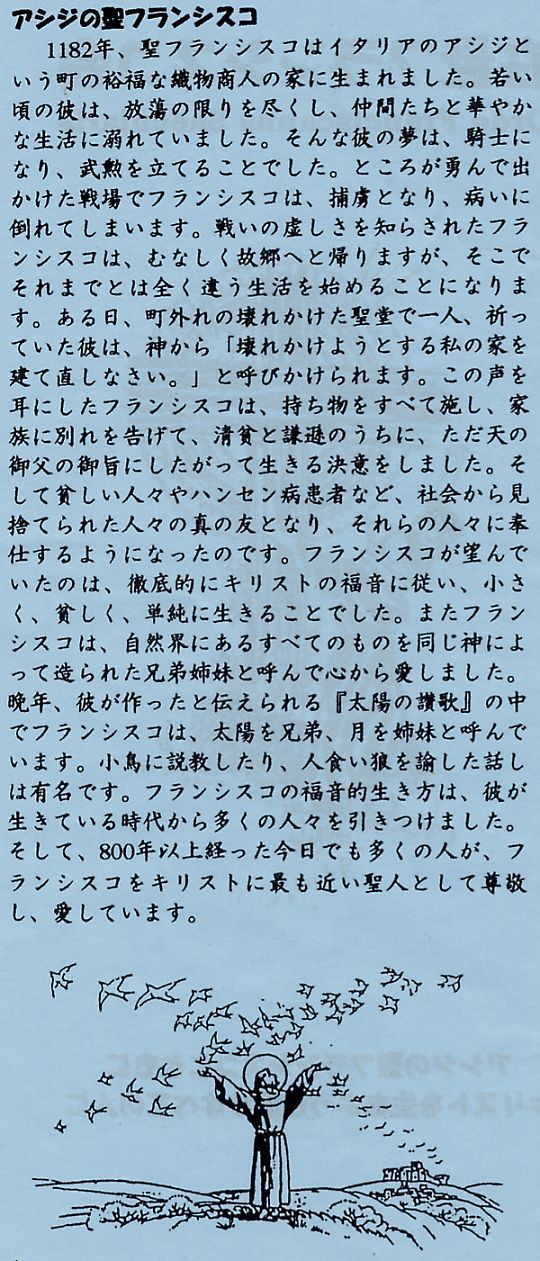 アシジの聖フランシスコ
1182年、聖フランシスコはイタリアのアシジと
いう町の裕福な織物商人の家に生まれました。若い
頃の彼は、放蕩の限りを尽くし、仲間たちと華やか
な生活に溺れていました。そんな彼の夢は、騎士に
なり、武勲を立てることでした。ところが勇んで出
かけた戦場でフランシスコは、捕虜となり、病いに
倒れてしまいます。戦いの虚しさを知らされたフラ
ンシスコは、むなしく故郷へと帰りますが、そこで
それまでとは全く違う生活を始めることになりま
す。ある日、町外れの壊れかけた聖堂で一人、祈っ
ていた彼は、神から「壊れかけようとする私の家を
建て直しなさい。」と呼びかけられます。この声を
耳にしたフランシスコは、持ち物をすべて施し、家
族に別れを告げて、清貧と謙遜のうちに、ただ天の
御父の御旨にしたがって生きる決意をしました。そ
して貧しい人々やハンセン病患者など、社会から見
捨てられた人々の真の友となり、それらの人々に奉
仕するようになったのです。フランシスコが望んで
いたのは、徹底的にキリストの福音に従い、小さ
く、貧しく、単純に生きることでした。またフラン
シスコは、自然界にあるすべてのものを同じ神によ
って造られた兄弟姉妹と呼んで心から愛しました。
晩年、彼が作ったと伝えられる『太陽の讃歌』の中
でフランシスコは、太陽を兄弟、月を姉妹と呼んで
います。小鳥に説教したり、人食い狼を諭した話し
は有名です。フランシスコの福音的生き方は、彼が
生きている時代から多くの人々を引きつけました。
そして、800年以上経った今日でも多くの人が、フ
ランシスコをキリストに最も近い聖人として尊敬
し、愛しています。